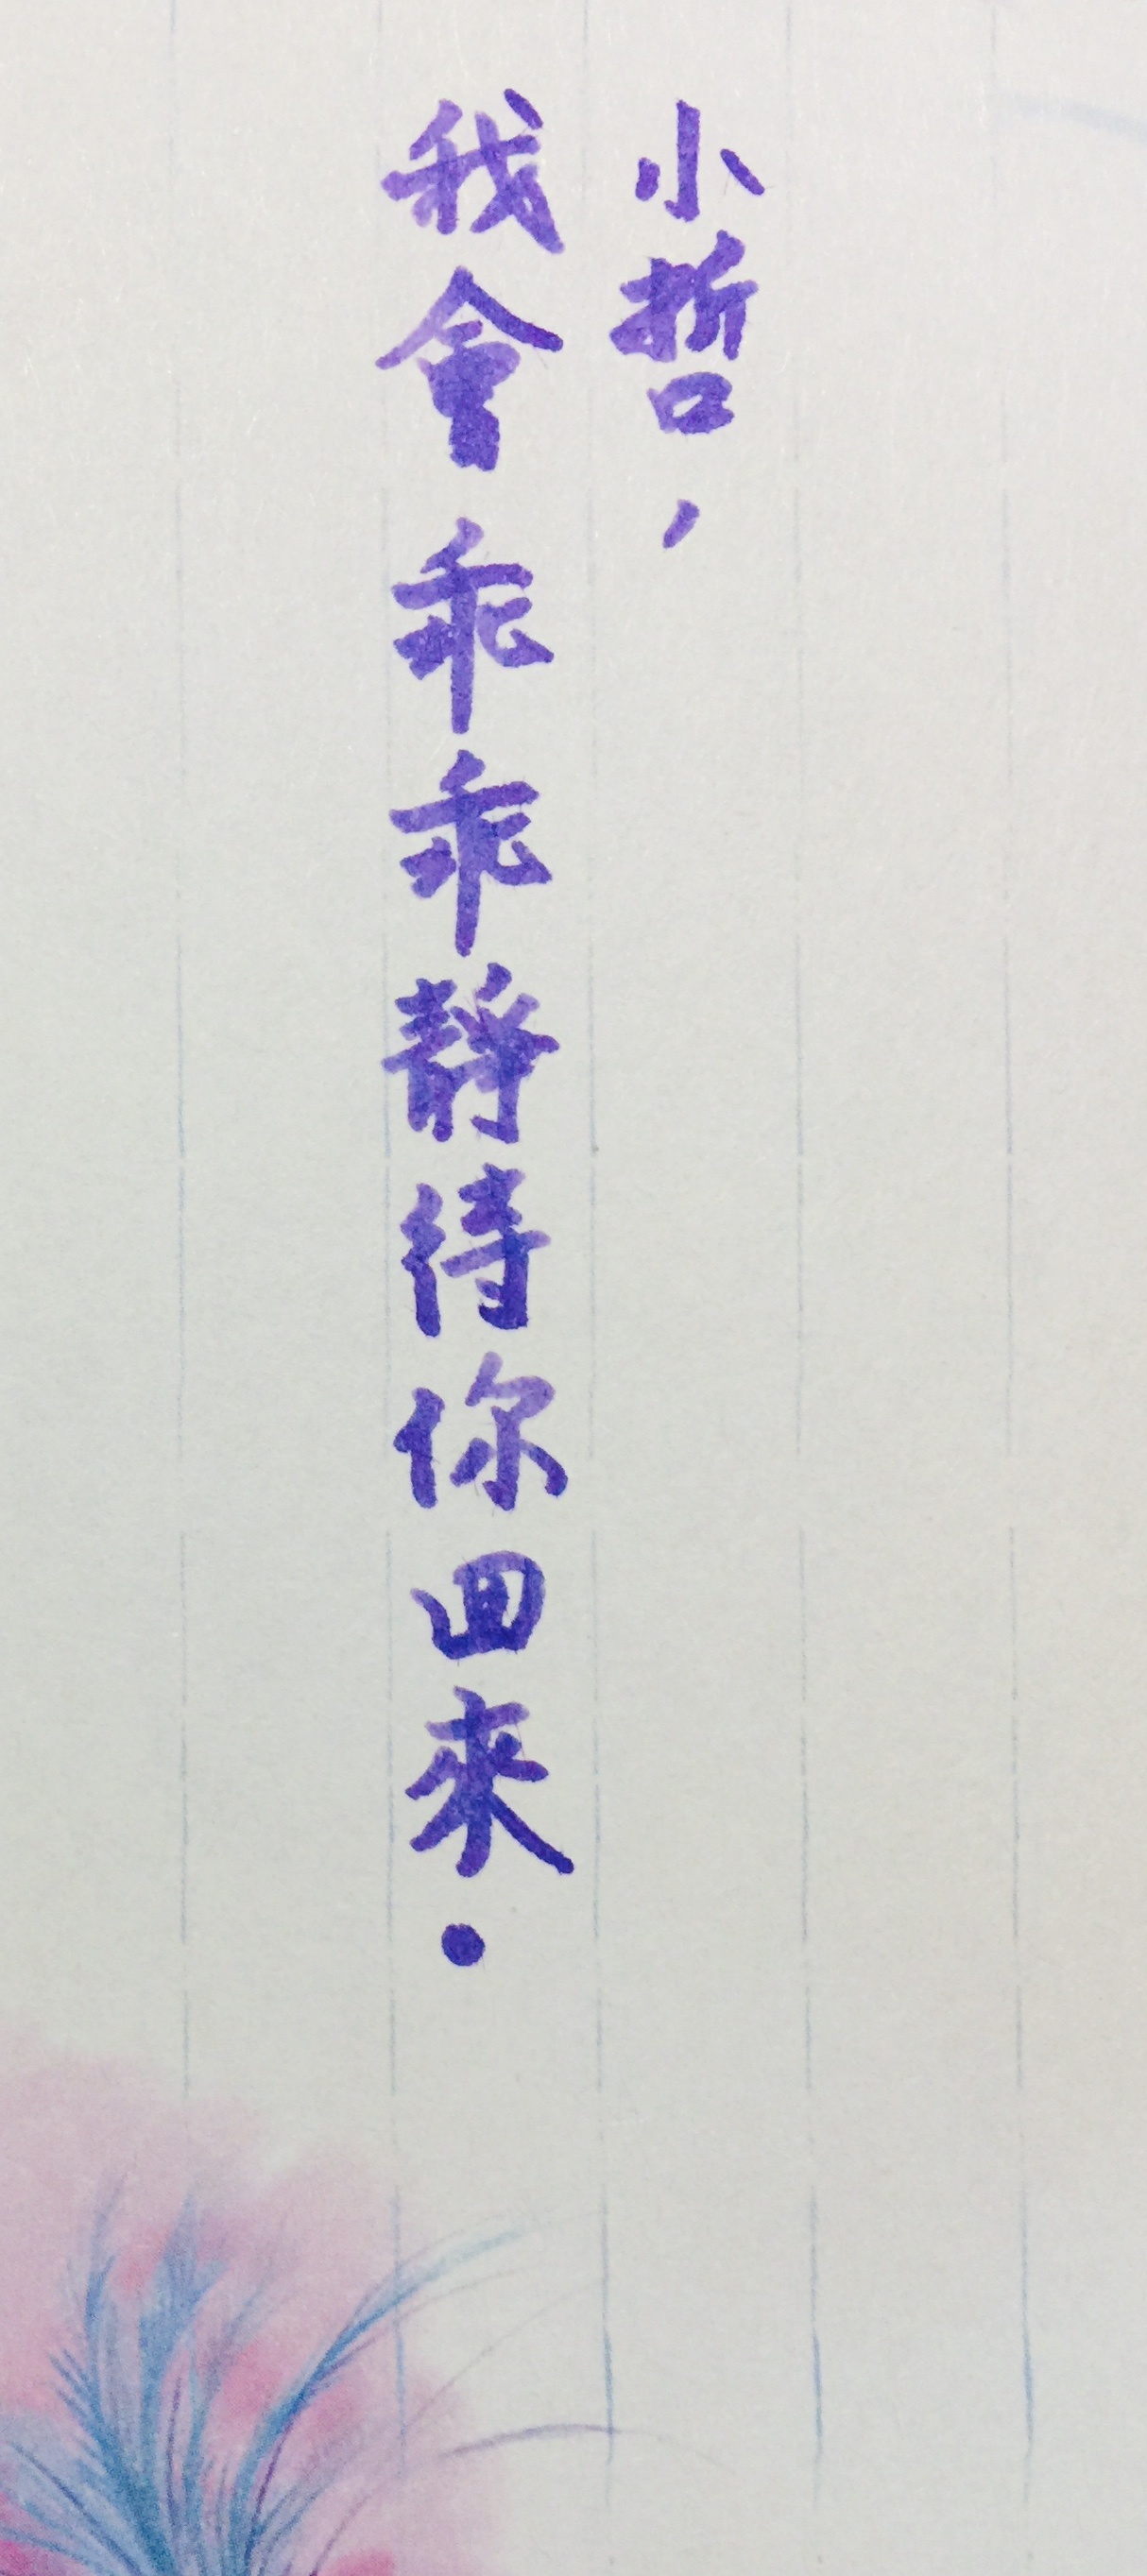 小哲，
我會乖乖靜待你回來.